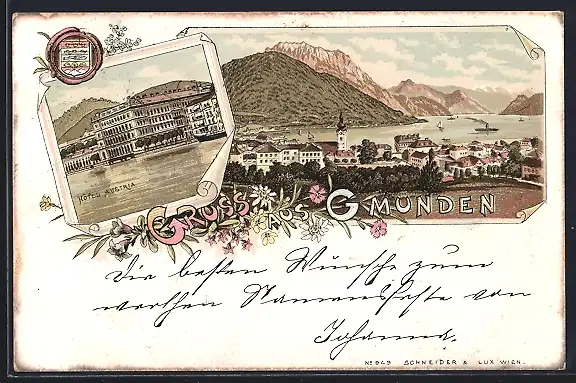 HOTEL AUSTRIA
GRUSS AUS GMUNDEN
Die besten Wünsche zum
werthen Namensfeste von
Johanna.
No 949 SCHNEIDER & LUX WIEN.